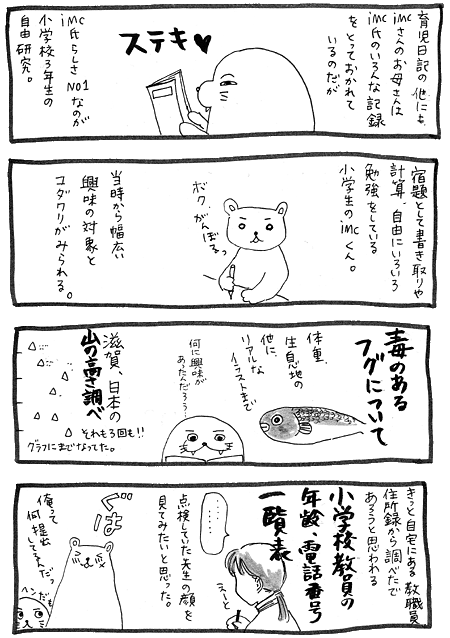 育児日記の他にも
iMCさんのお母さんは
iMC氏のいろんな記録
をとっておかれて
いるのだが
ステキ♥
iMC氏らしさ NO1
なのが
小学校3年生の
自由研究。
宿題として書き取りや
計算、自由にいろいろ
勉強をしている
小学生のiMCくん。
ボク、がんばるっ
当時から幅広い
興味の対象と
コダワリがみられる。
毒のある
フグについて
体重、
生息地の
他に、
リアルな
イラストまで
何に興味が
あったんだろう…
滋賀、日本の
山の高さ調べ
それも3回も!!
グラフにまでなってた。
きっと自宅にある教職員
住所録から調べたで
あろうと思われる
小学校教員の
年齢、電話番号
一覧表
……
えーと
点検していた先生の顔を
見てみたいと思った。
ぐは
俺って
何提出
してんだっ
ヘンだも